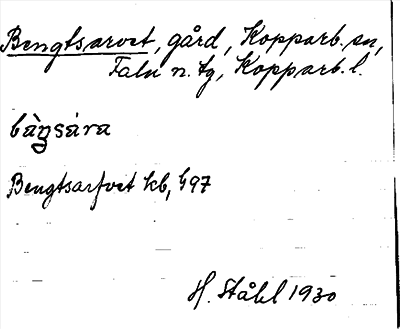 Bengtsarvet, gård, Kopparb. sn,
Falu n. tg, Kopparb. l.
bàŋsára
Bengtsarfvet kb, 97
H. Ståhl 1930